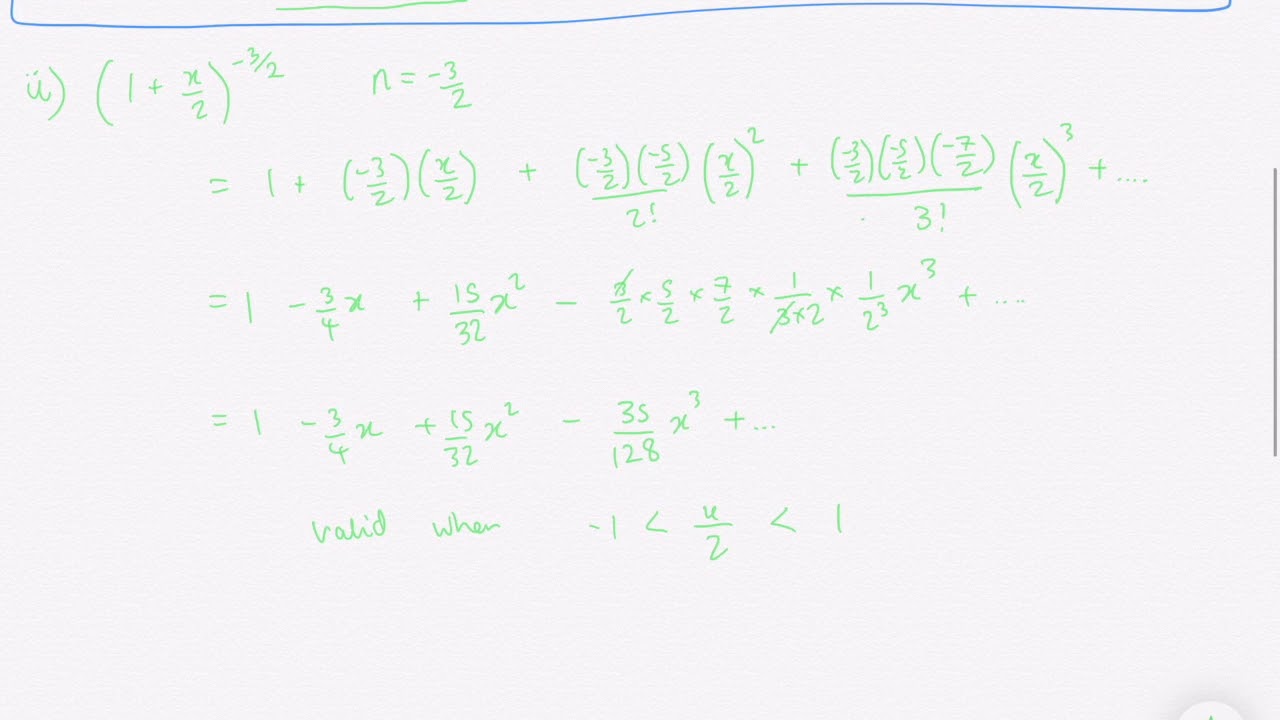 ii) (1 + x/2)^(-3/2) n = -3/2
= 1 + (-3/2)(x/2) + (-3/2)(-5/2)/2! (x/2)^2 + (-3/2)(-5/2)(-7/2)/3! (x/2)^3 + ....
= 1 - 3/4 x + 15/32 x^2 - 3/2 × 5/2 × 7/2 × 1/(3×2) × 1/2^3 x^3 + ....
= 1 - 3/4 x + 15/32 x^2 - 35/128 x^3 + ...
valid when -1 < x/2 < 1